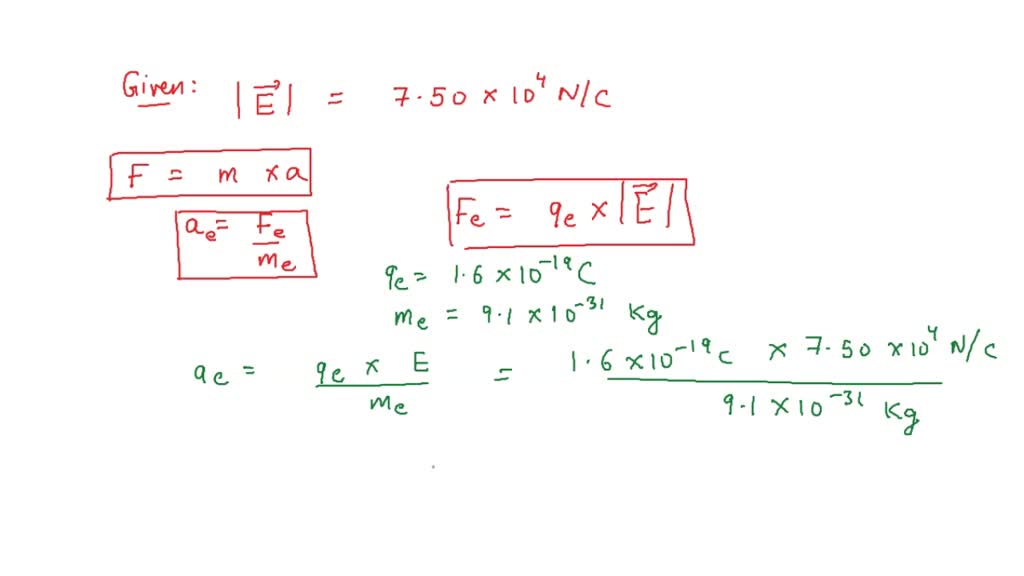 Given: |E⃗| = 7.50 × 10⁴ N/C
F = m × a
Fe = qe × |E⃗|
ae = Fe / me
qe = 1.6 × 10⁻¹⁹ C
me = 9.1 × 10⁻³¹ Kg
ae = qe × E / me = 1.6 × 10⁻¹⁹ C × 7.50 × 10⁴ N/C / 9.1 × 10⁻³¹ Kg